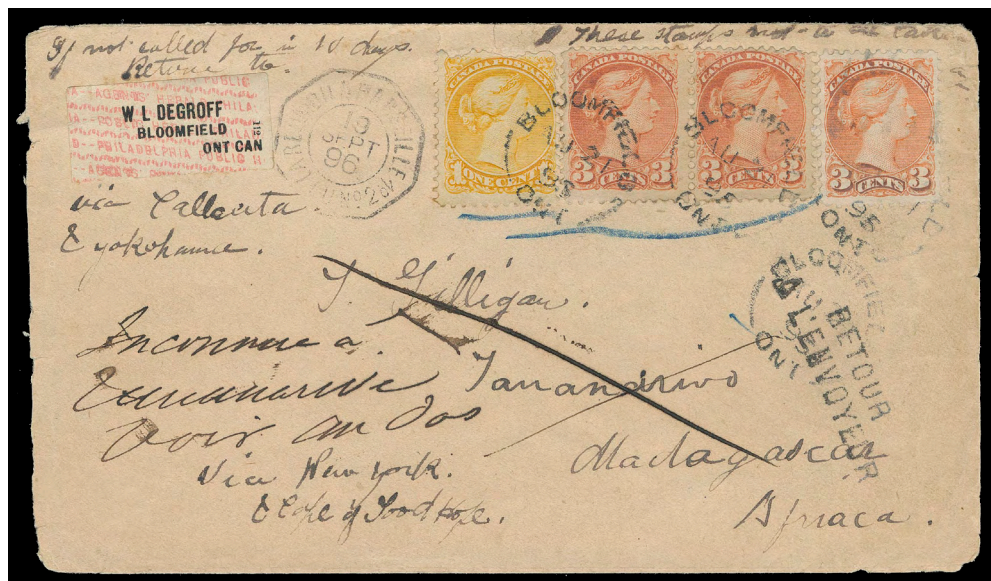 If not called for in 10 days.
Return to.
These stamps not to be
W L DEGROFF
BLOOMFIELD
ONT CAN
PHILADELPHIA PUBLIC
19
SEPT
96
CANADA POSTAGE
1 ONE CENT 1
CANADA POSTAGE
3 CENTS 3
CANADA POSTAGE
3 CENTS 3
CANADA POSTAGE
3 CENTS 3
BLOOMFIELD
ONT
BLOOMFIELD
ONT
95
ONT
BLOOMFIELD
AU
ONT
RETOUR
A L'ENVOYEUR
via Callcuta
& yokohamme.
T. Gilligan.
Inconnue a
Tananarive
voir au dos
Tananarivo
Madagascar
Africa.
Via New York.
& Cape of Good Hope.